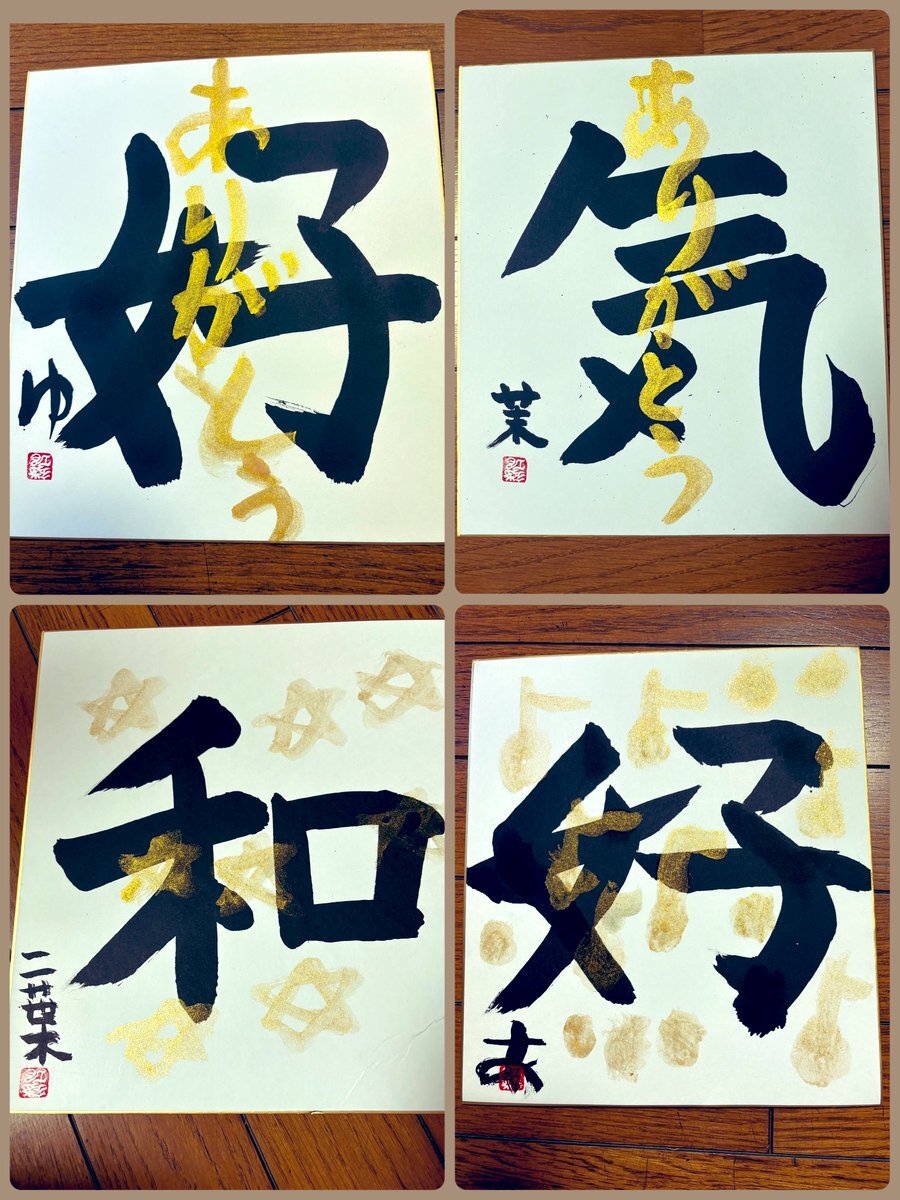 好
ありがとう
ゆ
気
ありがとう
茉
和
二葉
好
あ